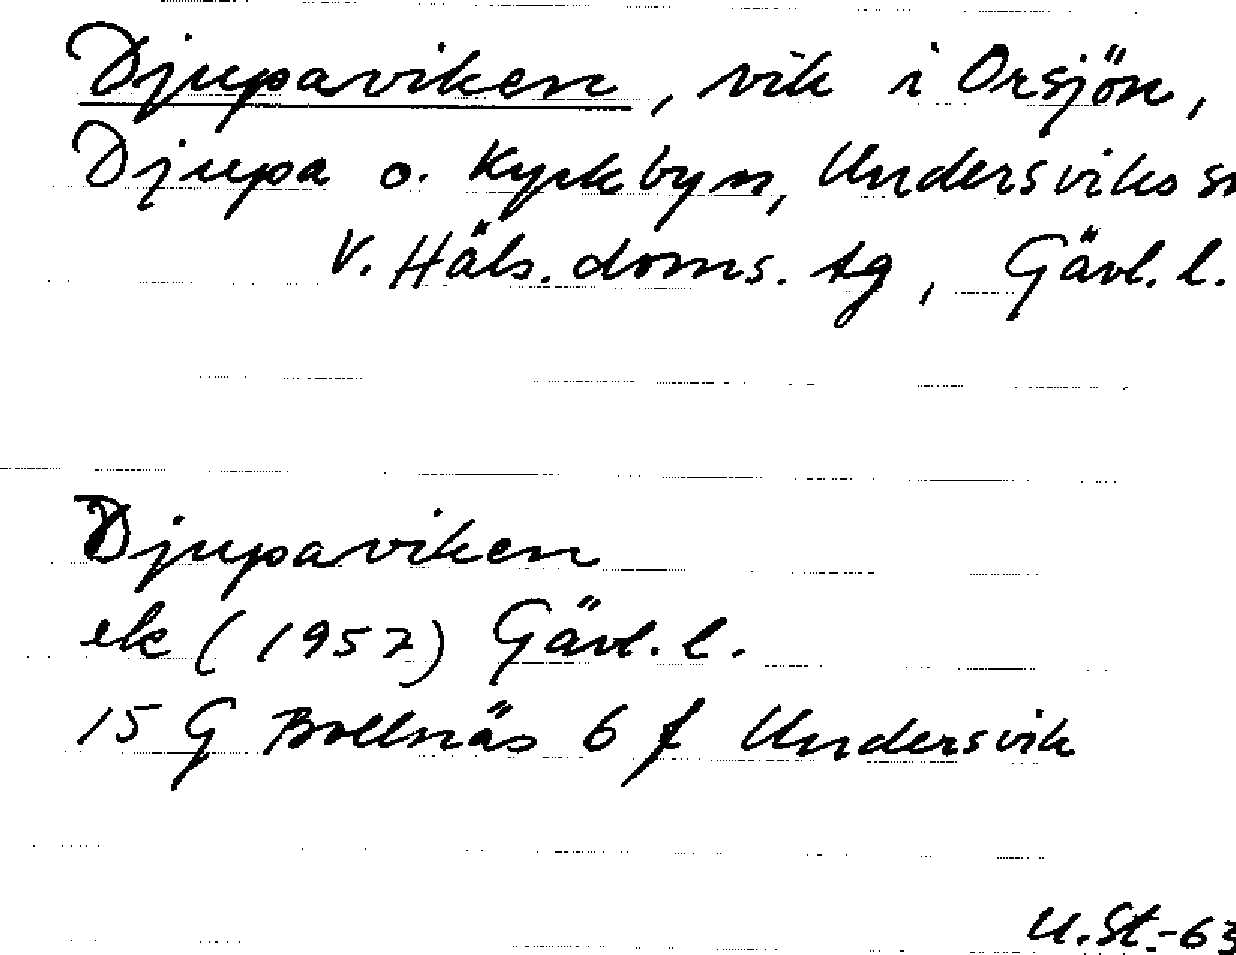 Djupaviken, vik i Orsjön,
Djupa o. Kyrkbyn, Undersviks sn
V. Häls. doms. tg, Gävl. l.
Djupaviken
ek (1957) Gävl. l.
15 G Bollnäs 6 f Undersvik
U.St.-63